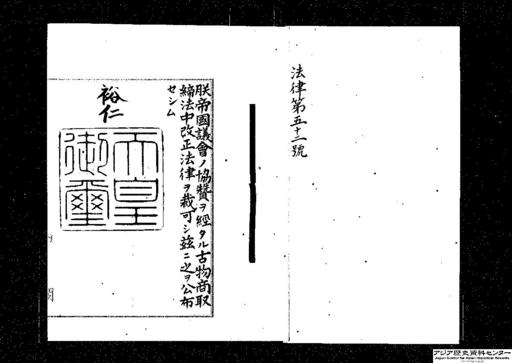 法律第五十二號
朕帝國議會ノ協贊ヲ經タル古物商取
締法中改正法律ヲ裁可シ茲ニ之ヲ公布
セシム
裕仁
天皇
御璽
アジア歴史資料センター
Japan Center for Asian Historical Records